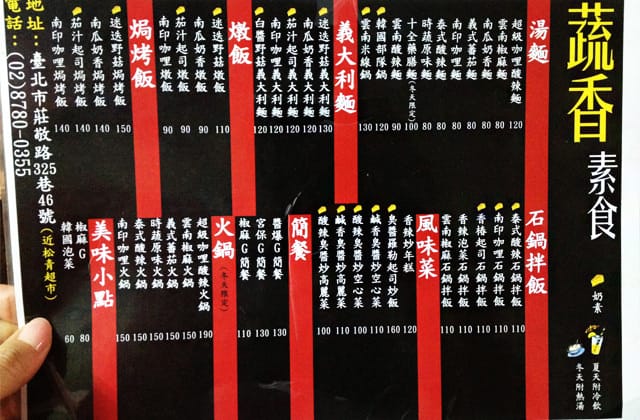 蔬香
素食
奶素
夏天附冷飲
冬天附熱湯
湯麵
超級咖哩酸辣麵 120
雲南椒麻麵 80
南瓜奶香麵 80
義式蕃茄麵 80
南印咖哩麵 80
泰式酸辣麵 80
時蔬原味麵 80
十全藥膳麵(冬天限定) 100
雲南酸辣麵 90
韓國部隊鍋 120
雲南米線鍋 130
義大利麵
迷迭野菇義大利麵 130
南瓜奶香義大利麵 120
茄汁起司義大利麵 120
南印咖哩義大利麵 120
白醬野菇義大利麵 120
燉飯
迷迭野菇燉飯 110
南瓜奶香燉飯 90
茄汁起司燉飯 90
南印咖哩燉飯 90
焗烤飯
迷迭野菇焗烤飯 150
南瓜奶香焗烤飯 140
茄汁起司焗烤飯 140
南印咖哩焗烤飯 140
石鍋拌飯
泰式酸辣石鍋拌飯 110
南印咖哩石鍋拌飯 110
香椿起司石鍋拌飯 110
香辣泡菜石鍋拌飯 110
雲南椒麻石鍋拌飯 110
風味菜
香辣炒年糕 120
臭醬羅勒起司炒飯 160
鹹香臭醬炒空心菜 110
酸辣臭醬炒空心菜 100
鹹香臭醬炒高麗菜 110
酸辣臭醬炒高麗菜 100
簡餐
醬爆G簡餐 130
宮保G簡餐 130
椒麻G簡餐 110
火鍋(冬天限定)
超級咖哩酸辣火鍋 190
雲南椒麻火鍋 150
義式蕃茄火鍋 150
時蔬原味火鍋 150
泰式酸辣火鍋 150
南印咖哩火鍋 150
美味小點
椒麻G 80
韓國泡菜 60
地址：臺北市莊敬路325巷46號(近松青超市)
電話：(02)8780-0355